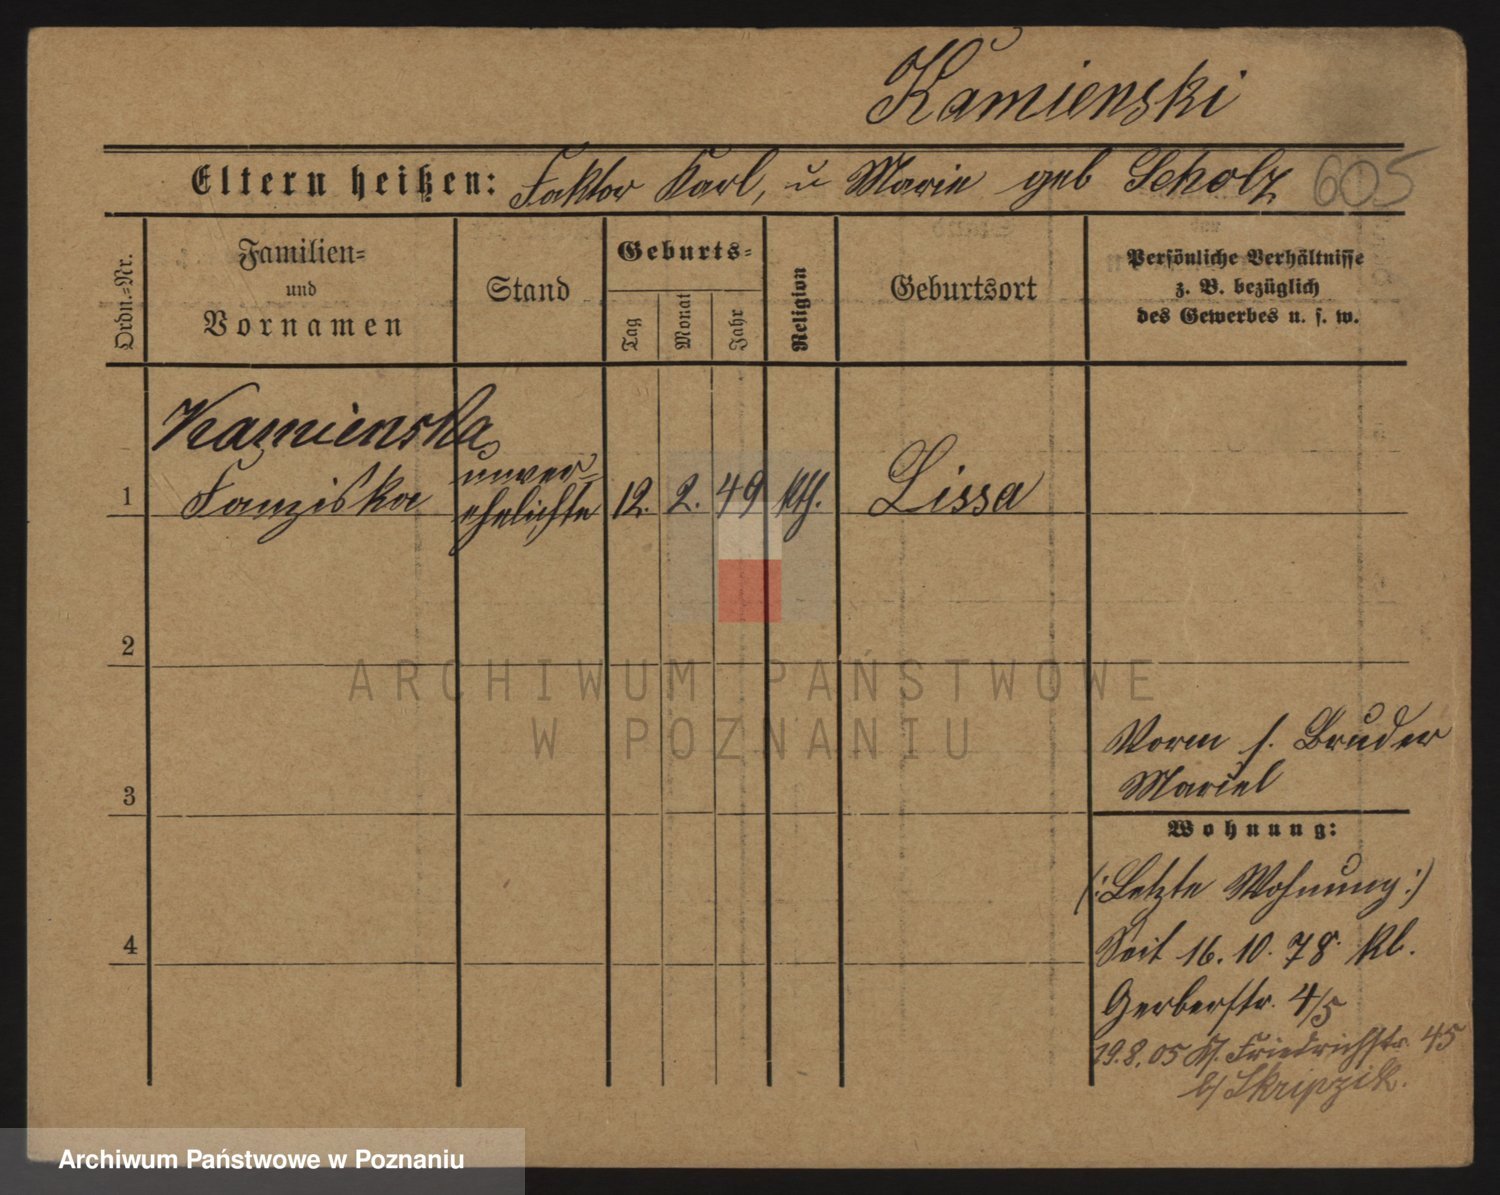 Kamienski
Eltern heißen: Faktor Karl, u Marie geb Scholz 605
Ordn.-Nr.
Familien-
und
Vornamen
Stand
Geburts-
Tag
Monat
Jahr
Religion
Geburtsort
Persönliche Verhältnisse
z. B. bezüglich
des Gewerbes u. s. w.
Kamienska
unver-
1 Franziska ehelichte 12. 2. 49 kth. Lissa
2
ARCHIWUM PAŃSTWOWE
W POZNANIU
Vorm s. Bruder
3 Mariel
Wohnung:
(: Letzte Wohnung :)
4 Seit 16. 10. 78 Kl.
Gerberstr. 4/5
19.8.05 Friedrichstr. 45
b/ Skripzik.
Archiwum Państwowe w Poznaniu